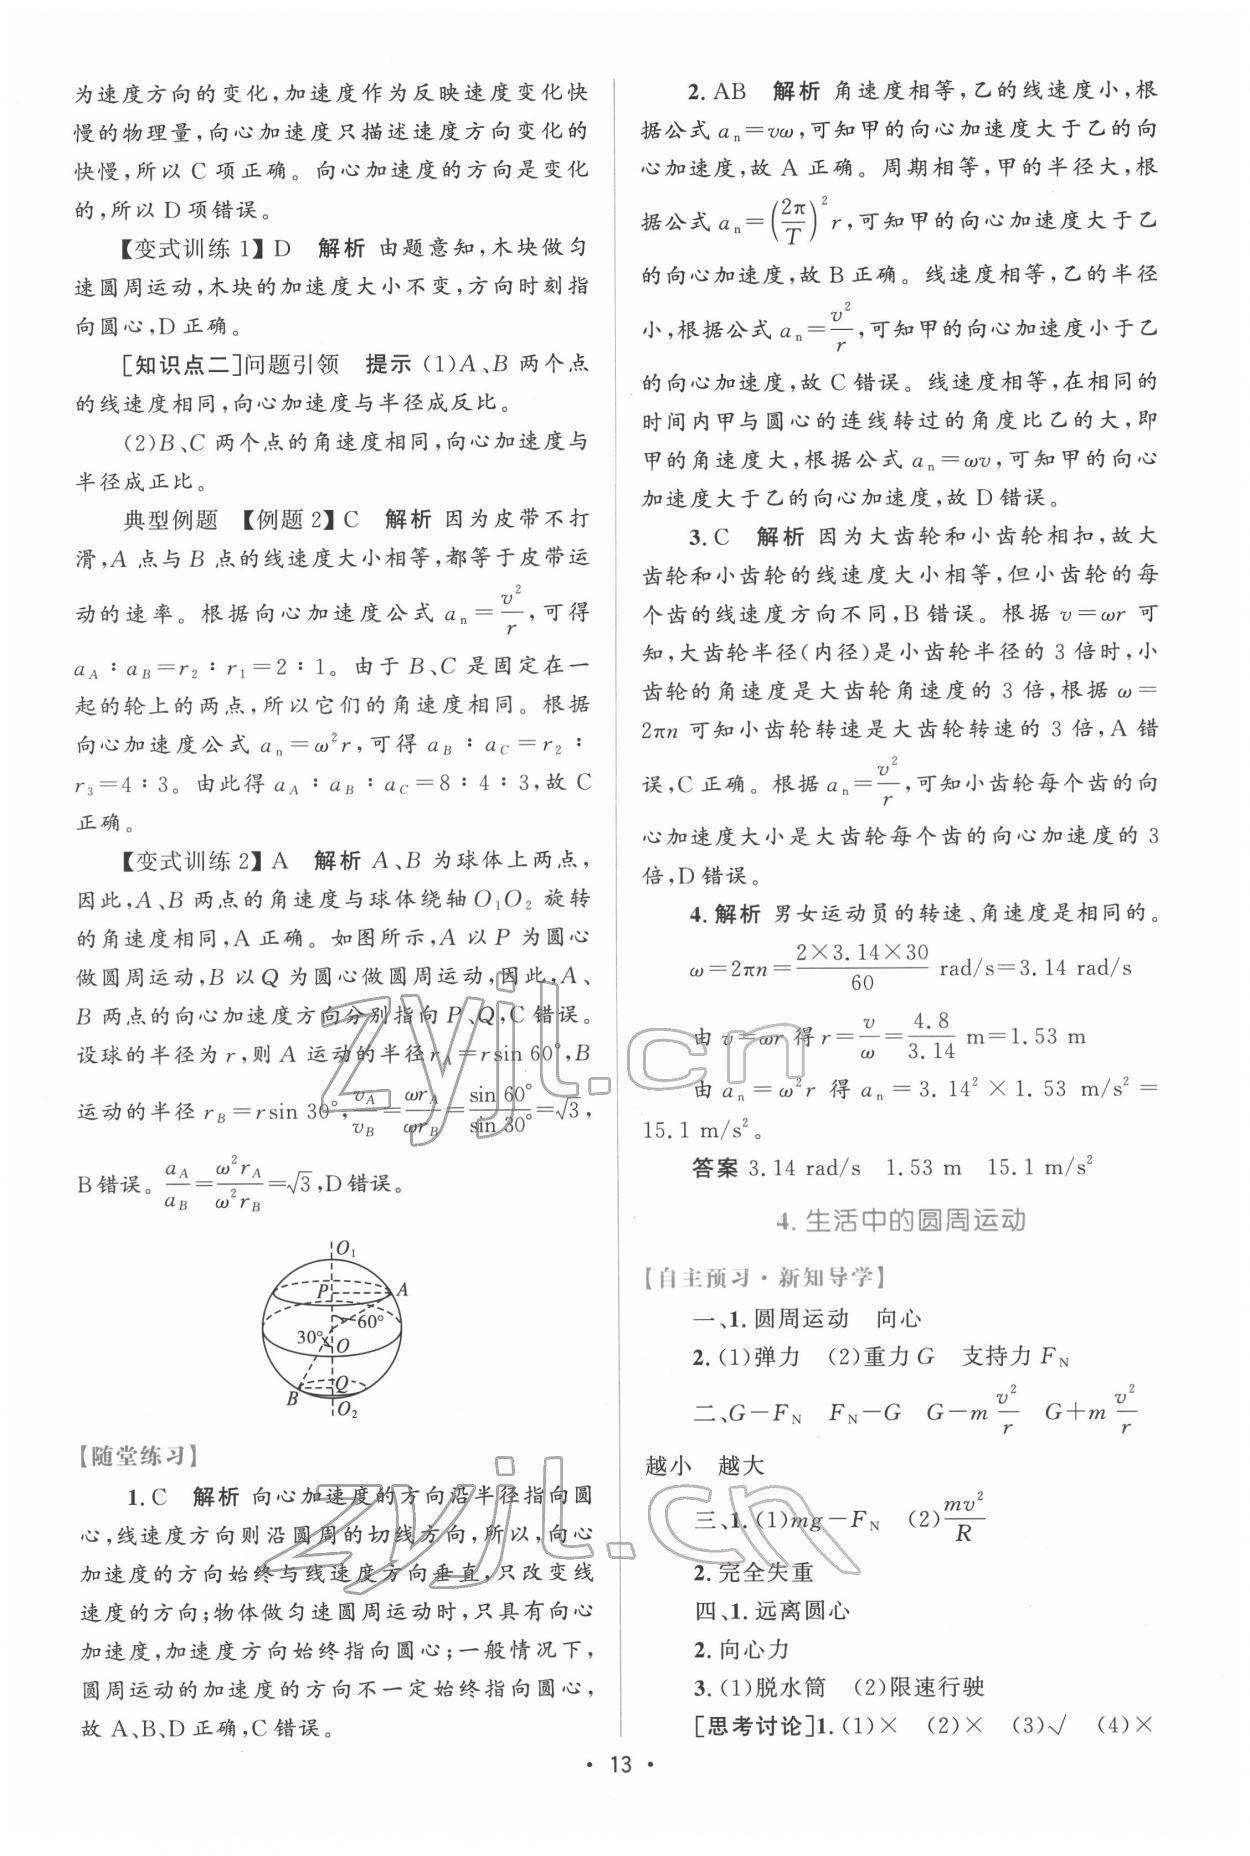 为速度方向的变化,加速度作为反映速度变化快
慢的物理量,向心加速度只描述速度方向变化的
快慢,所以 C 项正确。向心加速度的方向是变化
的,所以 D 项错误。
【变式训练 1】D 解析 由题意知,木块做匀
速圆周运动,木块的加速度大小不变,方向时刻指
向圆心,D 正确。
[知识点二]问题引领 提示 (1)A、B 两个点
的线速度相同,向心加速度与半径成反比。
(2)B、C 两个点的角速度相同,向心加速度与
半径成正比。
典型例题 【例题 2】C 解析 因为皮带不打
滑,A 点与 B 点的线速度大小相等,都等于皮带运
动的速率。根据向心加速度公式 aₙ=v²/r,可得
a_A∶a_B=r₂∶r₁=2∶1。由于 B、C 是固定在一
起的轮上的两点,所以它们的角速度相同。根据
向心加速度公式 aₙ=ω²r,可得 a_B∶a_C=r₂∶
r₃=4∶3。由此得 a_A∶a_B∶a_C=8∶4∶3,故 C
正确。
【变式训练 2】A 解析 A、B 为球体上两点,
因此,A、B 两点的角速度与球体绕轴 O₁O₂ 旋转
的角速度相同,A 正确。如图所示,A 以 P 为圆心
做圆周运动,B 以 Q 为圆心做圆周运动,因此,A、
B 两点的向心加速度方向分别指向 P、Q,C 错误。
设球的半径为 r,则 A 运动的半径 r_A=rsin 60°,B
运动的半径 r_B=rsin 30°,v_A/v_B=ωr_A/ωr_B=sin 60°/sin 30°=√3,
B 错误。a_A/a_B=ω²r_A/ω²r_B=√3,D 错误。
O₁
P A
60°
30° O
B Q
O₂
【随堂练习】
1. C 解析 向心加速度的方向沿半径指向圆
心,线速度方向则沿圆周的切线方向,所以,向心
加速度的方向始终与线速度方向垂直,只改变线
速度的方向;物体做匀速圆周运动时,只具有向心
加速度,加速度方向始终指向圆心;一般情况下,
圆周运动的加速度的方向不一定始终指向圆心,
故 A、B、D 正确,C 错误。
2. AB 解析 角速度相等,乙的线速度小,根
据公式 aₙ=vω,可知甲的向心加速度大于乙的向
心加速度,故 A 正确。周期相等,甲的半径大,根
据公式 aₙ=(2π/T)²r,可知甲的向心加速度大于乙
的向心加速度,故 B 正确。线速度相等,乙的半径
小,根据公式 aₙ=v²/r,可知甲的向心加速度小于乙
的向心加速度,故 C 错误。线速度相等,在相同的
时间内甲与圆心的连线转过的角度比乙的大,即
甲的角速度大,根据公式 aₙ=ωv,可知甲的向心
加速度大于乙的向心加速度,故 D 错误。
3. C 解析 因为大齿轮和小齿轮相扣,故大
齿轮和小齿轮的线速度大小相等,但小齿轮的每
个齿的线速度方向不同,B 错误。根据 v=ωr 可
知,大齿轮半径(内径)是小齿轮半径的 3 倍时,小
齿轮的角速度是大齿轮角速度的 3 倍,根据 ω=
2πn 可知小齿轮转速是大齿轮转速的 3 倍,A 错
误,C 正确。根据 aₙ=v²/r,可知小齿轮每个齿的向
心加速度大小是大齿轮每个齿的向心加速度的 3
倍,D 错误。
4. 解析 男女运动员的转速、角速度是相同的。
ω=2πn=2×3.14×30/60 rad/s=3.14 rad/s
由 v=ωr 得 r=v/ω=4.8/3.14 m=1.53 m
由 aₙ=ω²r 得 aₙ=3.14²×1.53 m/s²=
15.1 m/s²。
答案 3.14 rad/s 1.53 m 15.1 m/s²
4. 生活中的圆周运动
【自主预习·新知导学】
一、1. 圆周运动 向心
2. (1)弹力 (2)重力 G 支持力 F_N
二、G-F_N F_N-G G-m v²/r G+m v²/r
越小 越大
三、1. (1)mg-F_N (2)mv²/R
2. 完全失重
四、1. 远离圆心
2. 向心力
3. (1)脱水筒 (2)限速行驶
[思考讨论]1. (1)× (2)× (3)√ (4)×
· 13 ·
zyjl.cn
zyjl.cn